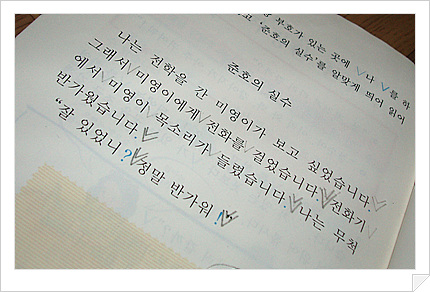 부호가 있는 곳에 ∨나 ⩔를 하
고 '준호의 실수'를 알맞게 띄어 읽어
준호의 실수
나는 전학을 간 미영이가 보고 싶었습니다.
그래서∨미영이에게∨전화를∨걸었습니다.⩔전화기
에서∨미영이∨목소리가∨들렸습니다.⩔나는 무척
반가웠습니다.⩔
“잘 있었니?⩔정말 반가워!⩔